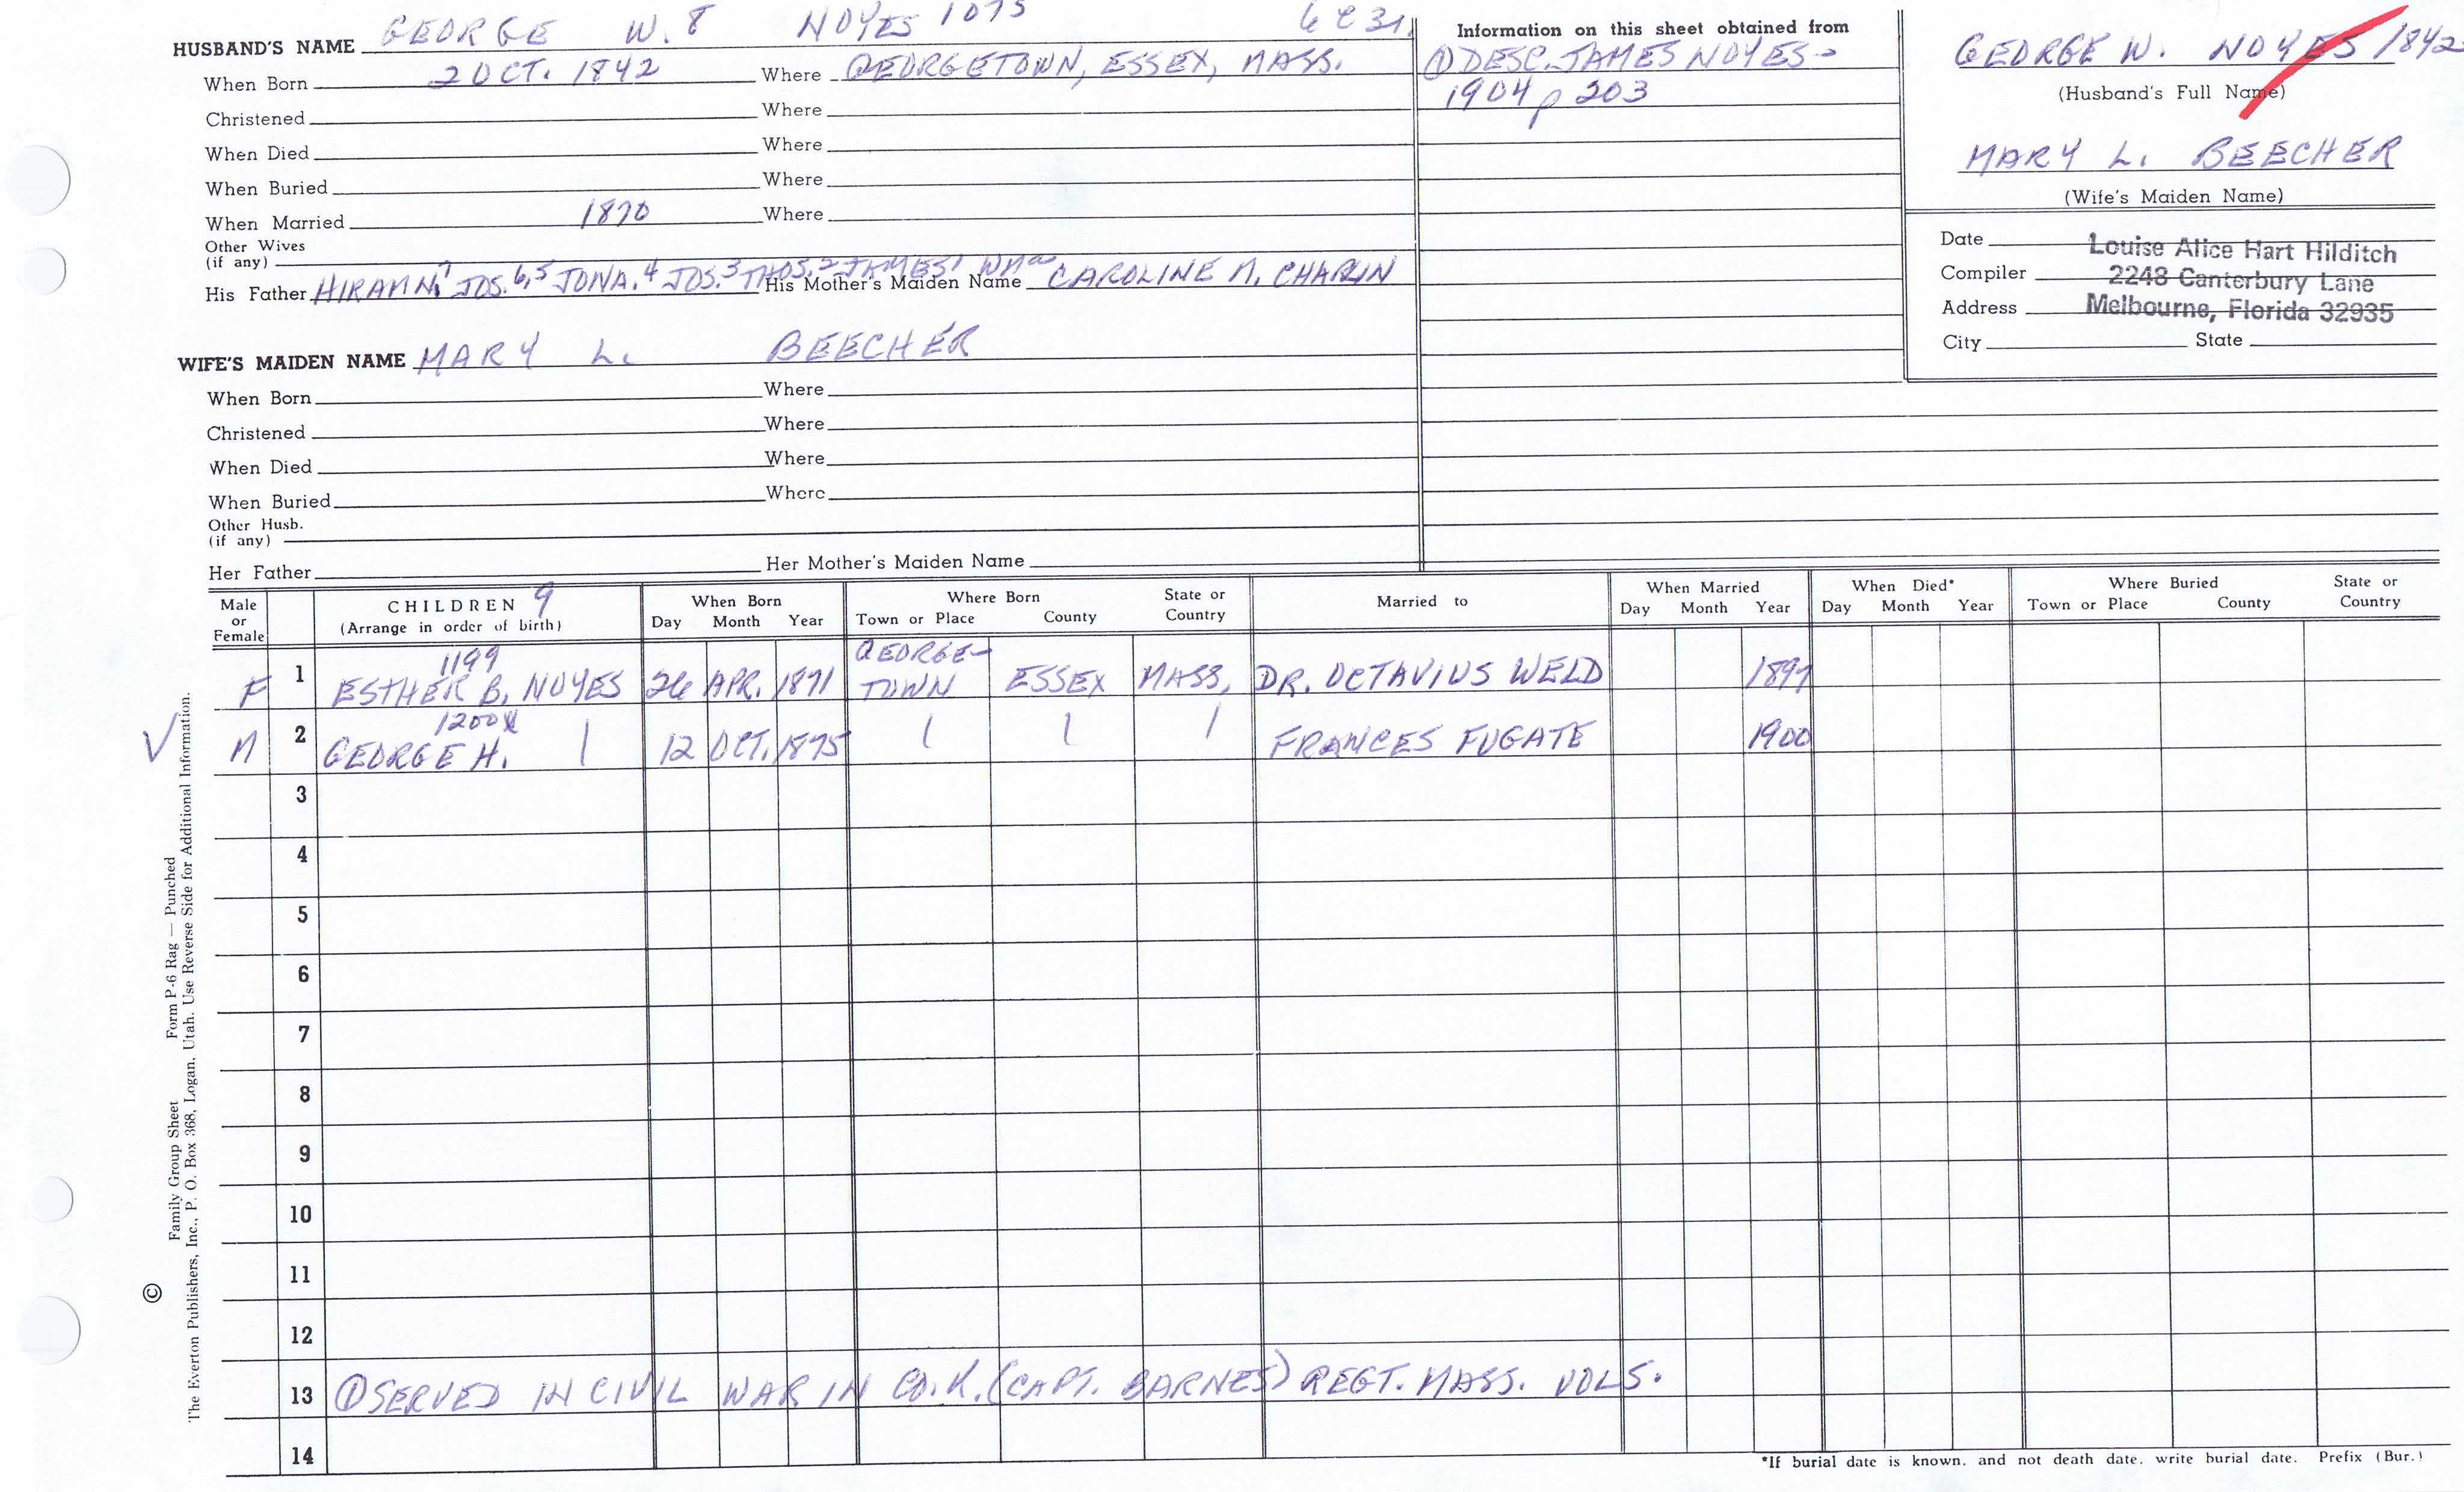 HUSBAND'S NAME GEORGE W. 8 NOYES 1075
When Born 2 OCT. 1842 Where GEORGETOWN, ESSEX, MASS.
Christened Where
When Died Where
When Buried Where
When Married 1870 Where
Other Wives
(if any)
His Father HIRAM N.7 JOS.6,5 JONA.4 JOS.3 THOS.2 JAMES1 WMa His Mother's Maiden Name CAROLINE M. CHAPLIN
WIFE'S MAIDEN NAME MARY L. BEECHER
When Born Where
Christened Where
When Died Where
When Buried Where
Other Husb.
(if any)
Her Father Her Mother's Maiden Name
Information on this sheet obtained from
① DESC. JAMES NOYES -
1904 p 203
GEORGE W. NOYES 1842
(Husband's Full Name)
MARY L. BEECHER
(Wife's Maiden Name)
Date Louise Alice Hart Hilditch
Compiler 2248 Canterbury Lane
Address Melbourne, Florida 32935
City State
Male or Female CHILDREN 9 (Arrange in order of birth) When Born Day Month Year Where Born Town or Place County State or Country Married to When Married Day Month Year When Died* Day Month Year Where Buried Town or Place County State or Country
1199
F 1 ESTHER B. NOYES 26 APR. 1871 GEORGE-TOWN ESSEX MASS. DR. OCTAVIUS WELD 1897
1200x
√ M 2 GEORGE H. | 12 OCT. 1875 | | | FRANCES FUGATE 1900
3
4
5
6
7
8
9
10
11
12
13 ① SERVED IN CIVIL WAR IN CO. K. (CAPT. BARNES) REGT. MASS. VOLS.
14
*If burial date is known, and not death date, write burial date. Prefix (Bur.)
Family Group Sheet Form P-6 Rag — Punched
© The Everton Publishers, Inc., P. O. Box 368, Logan, Utah. Use Reverse Side for Additional Information.